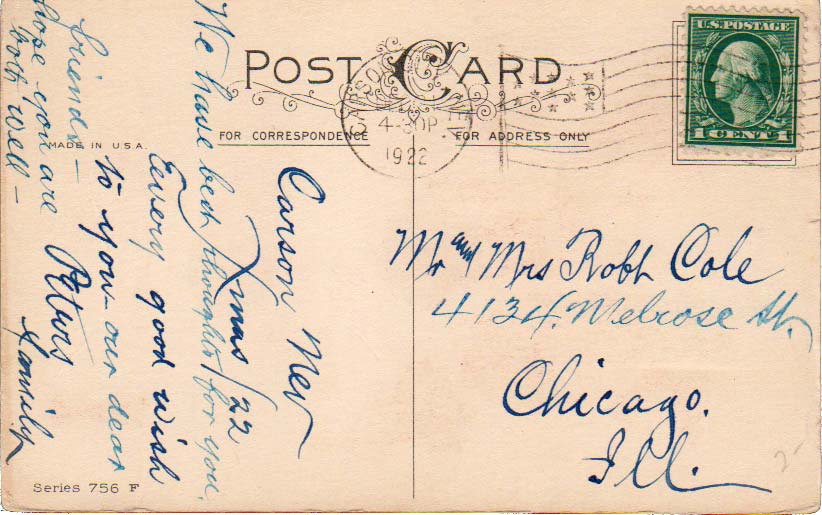 POST CARD
FOR CORRESPONDENCE
FOR ADDRESS ONLY
MADE IN U.S.A.
U.S. POSTAGE
1 CENT 1
CARSON
4-30P
1922
Carson Nev
Xmas/22
We have best thoughts for you.
Every good wish
to you - our dear
friends -
hope you are
both well -
Peters
Family
Mr and Mrs Robt Cole
4134. Melrose St.
Chicago.
Ill.
Series 756 F